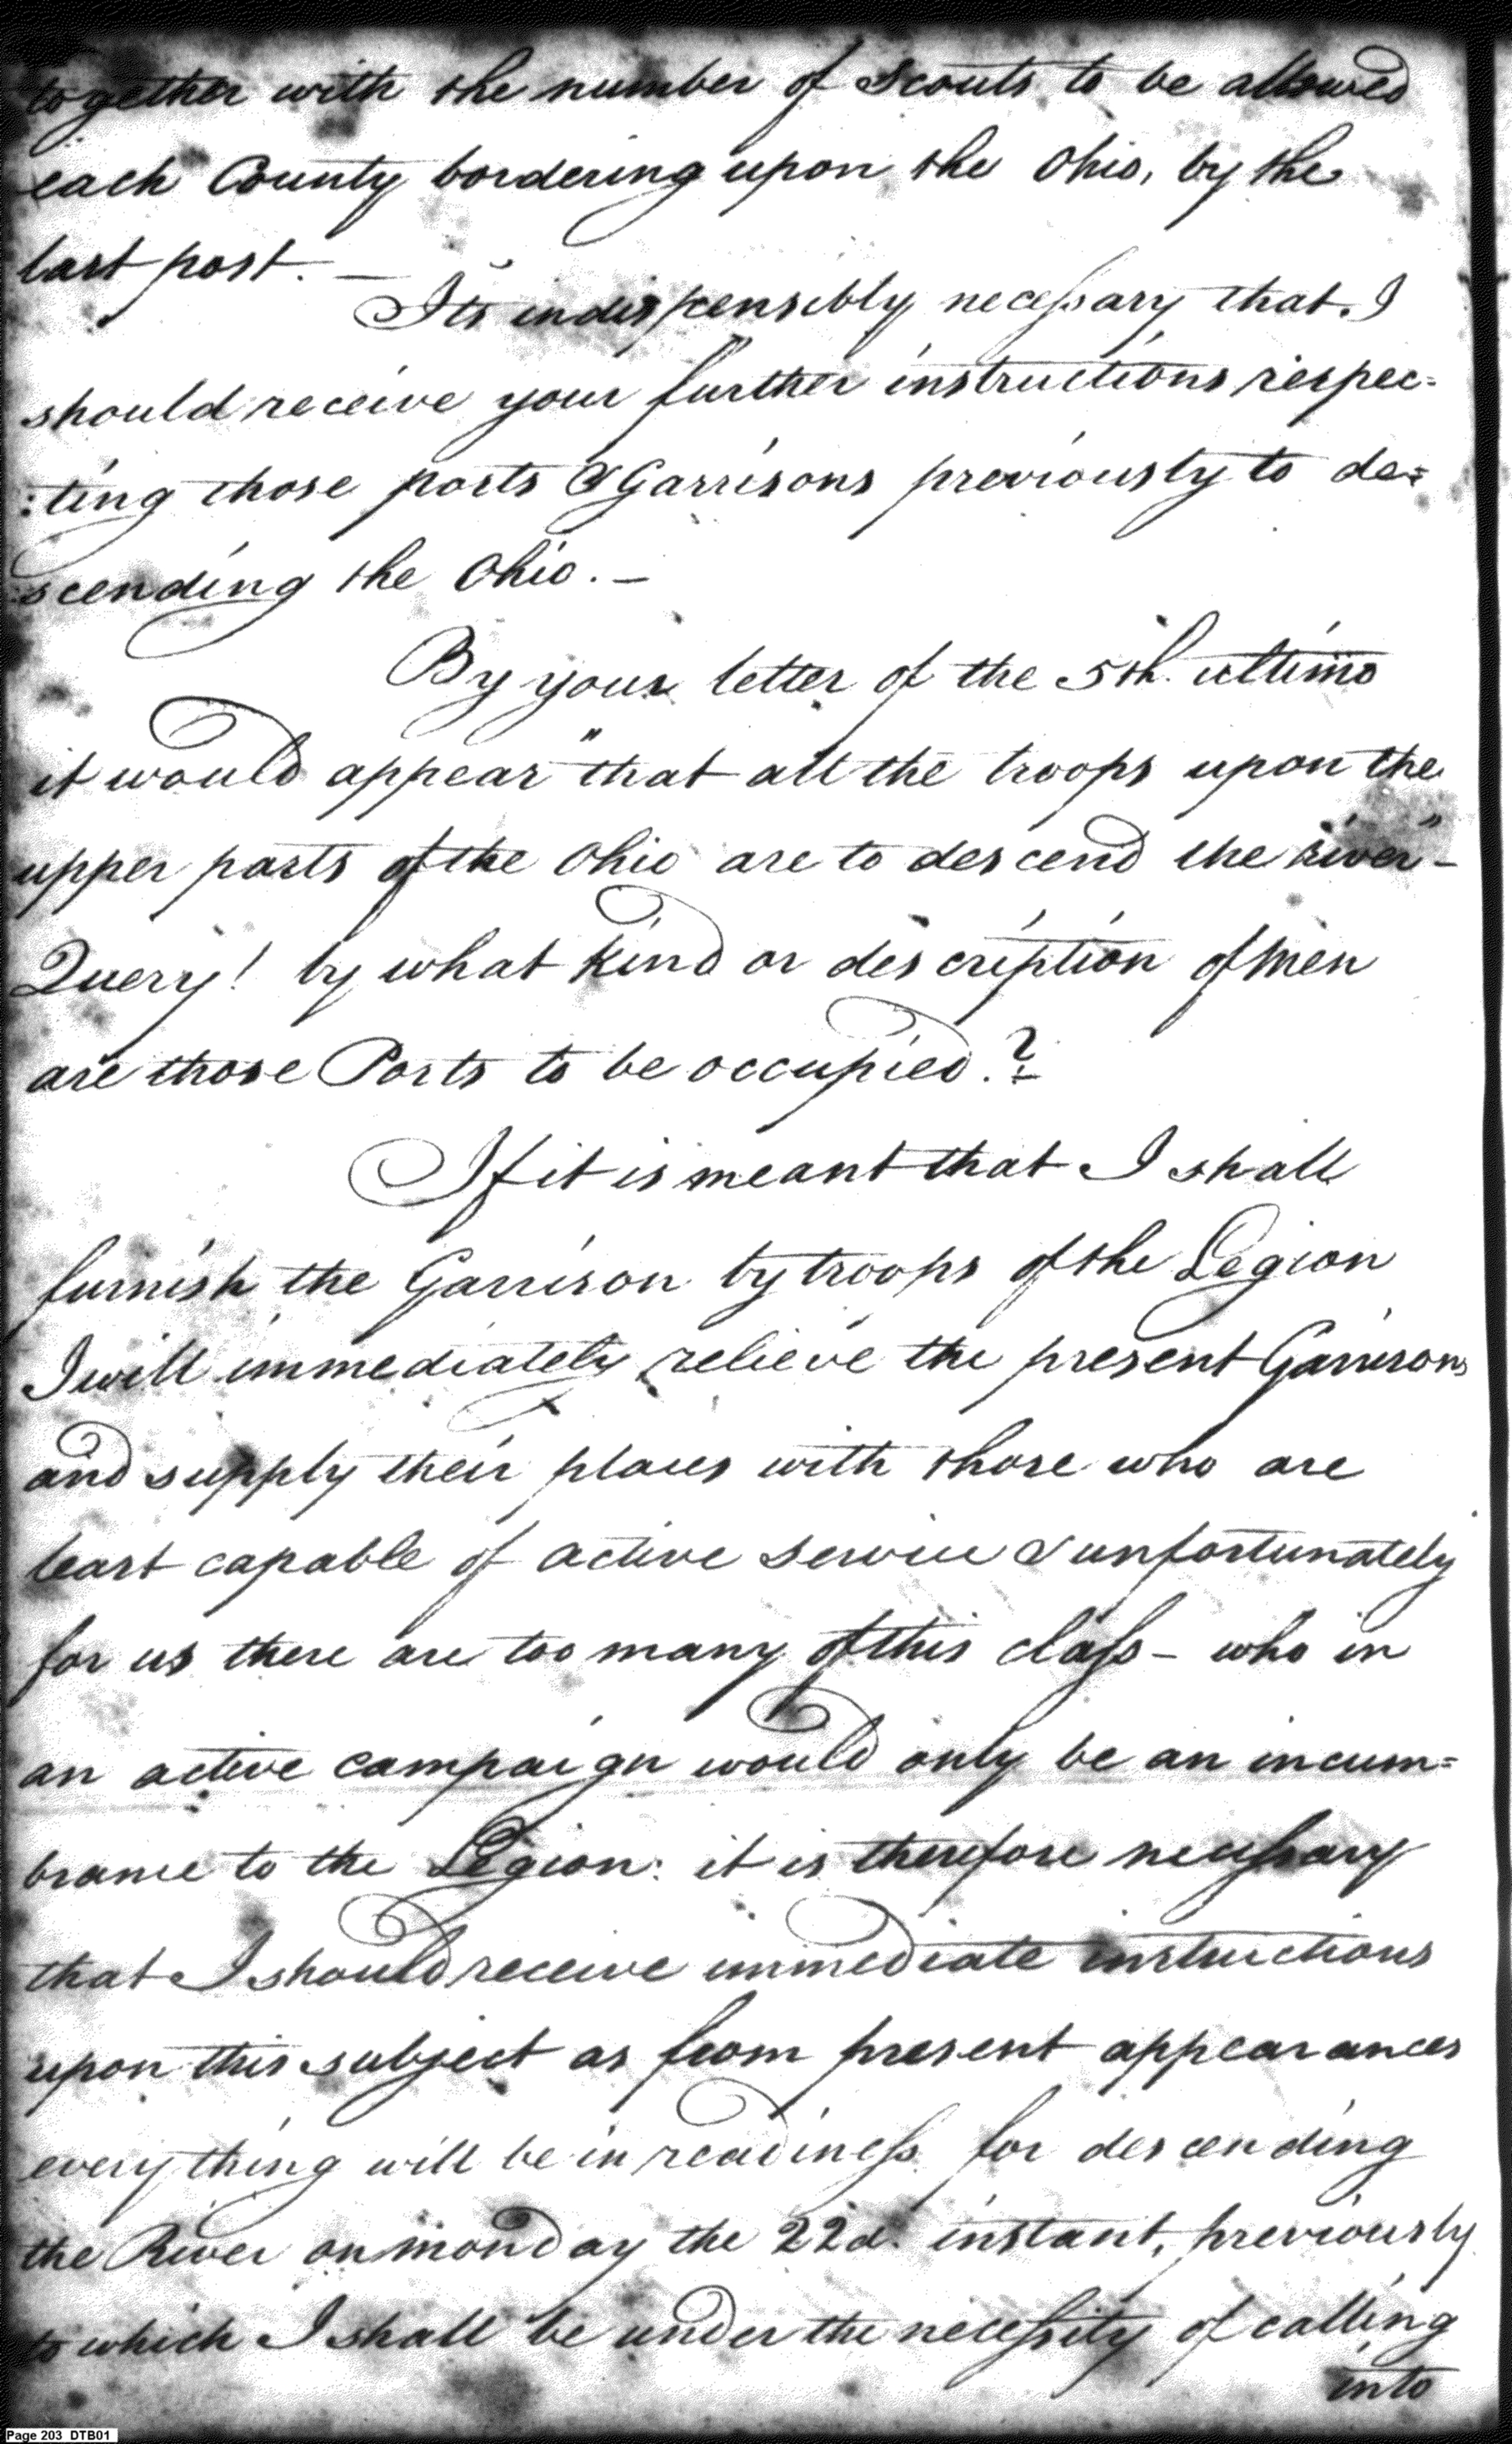 together with the number of Scouts to be allowed
each County bordering upon the Ohio, by the
last post. —
Its indispensibly necessary that I
should receive your further instructions respec=
:ting those posts & Garrisons previously to de=
:scending the Ohio. —
By your letter of the 5th. ultimo
it would appear "that all the troops upon the
upper parts of the Ohio are to descend the river" —
Query! by what kind or description of men
are those Posts to be occupied.?
If it is meant that I shall
furnish the Garrison by troops of the Legion
I will immediately relieve the present Garrisons
and supply their places with those who are
least capable of active service & unfortunately
for us there are too many of this class — who in
an active campaign would only be an incum=
brance to the Legion: it is therefore necessary
that I should receive immediate instructions
upon this subject as from present appearances
every thing will be in readiness for descending
the River on monday the 22d. instant, previously
to which I shall be under the necessity of calling
into
Page 203 DTB01